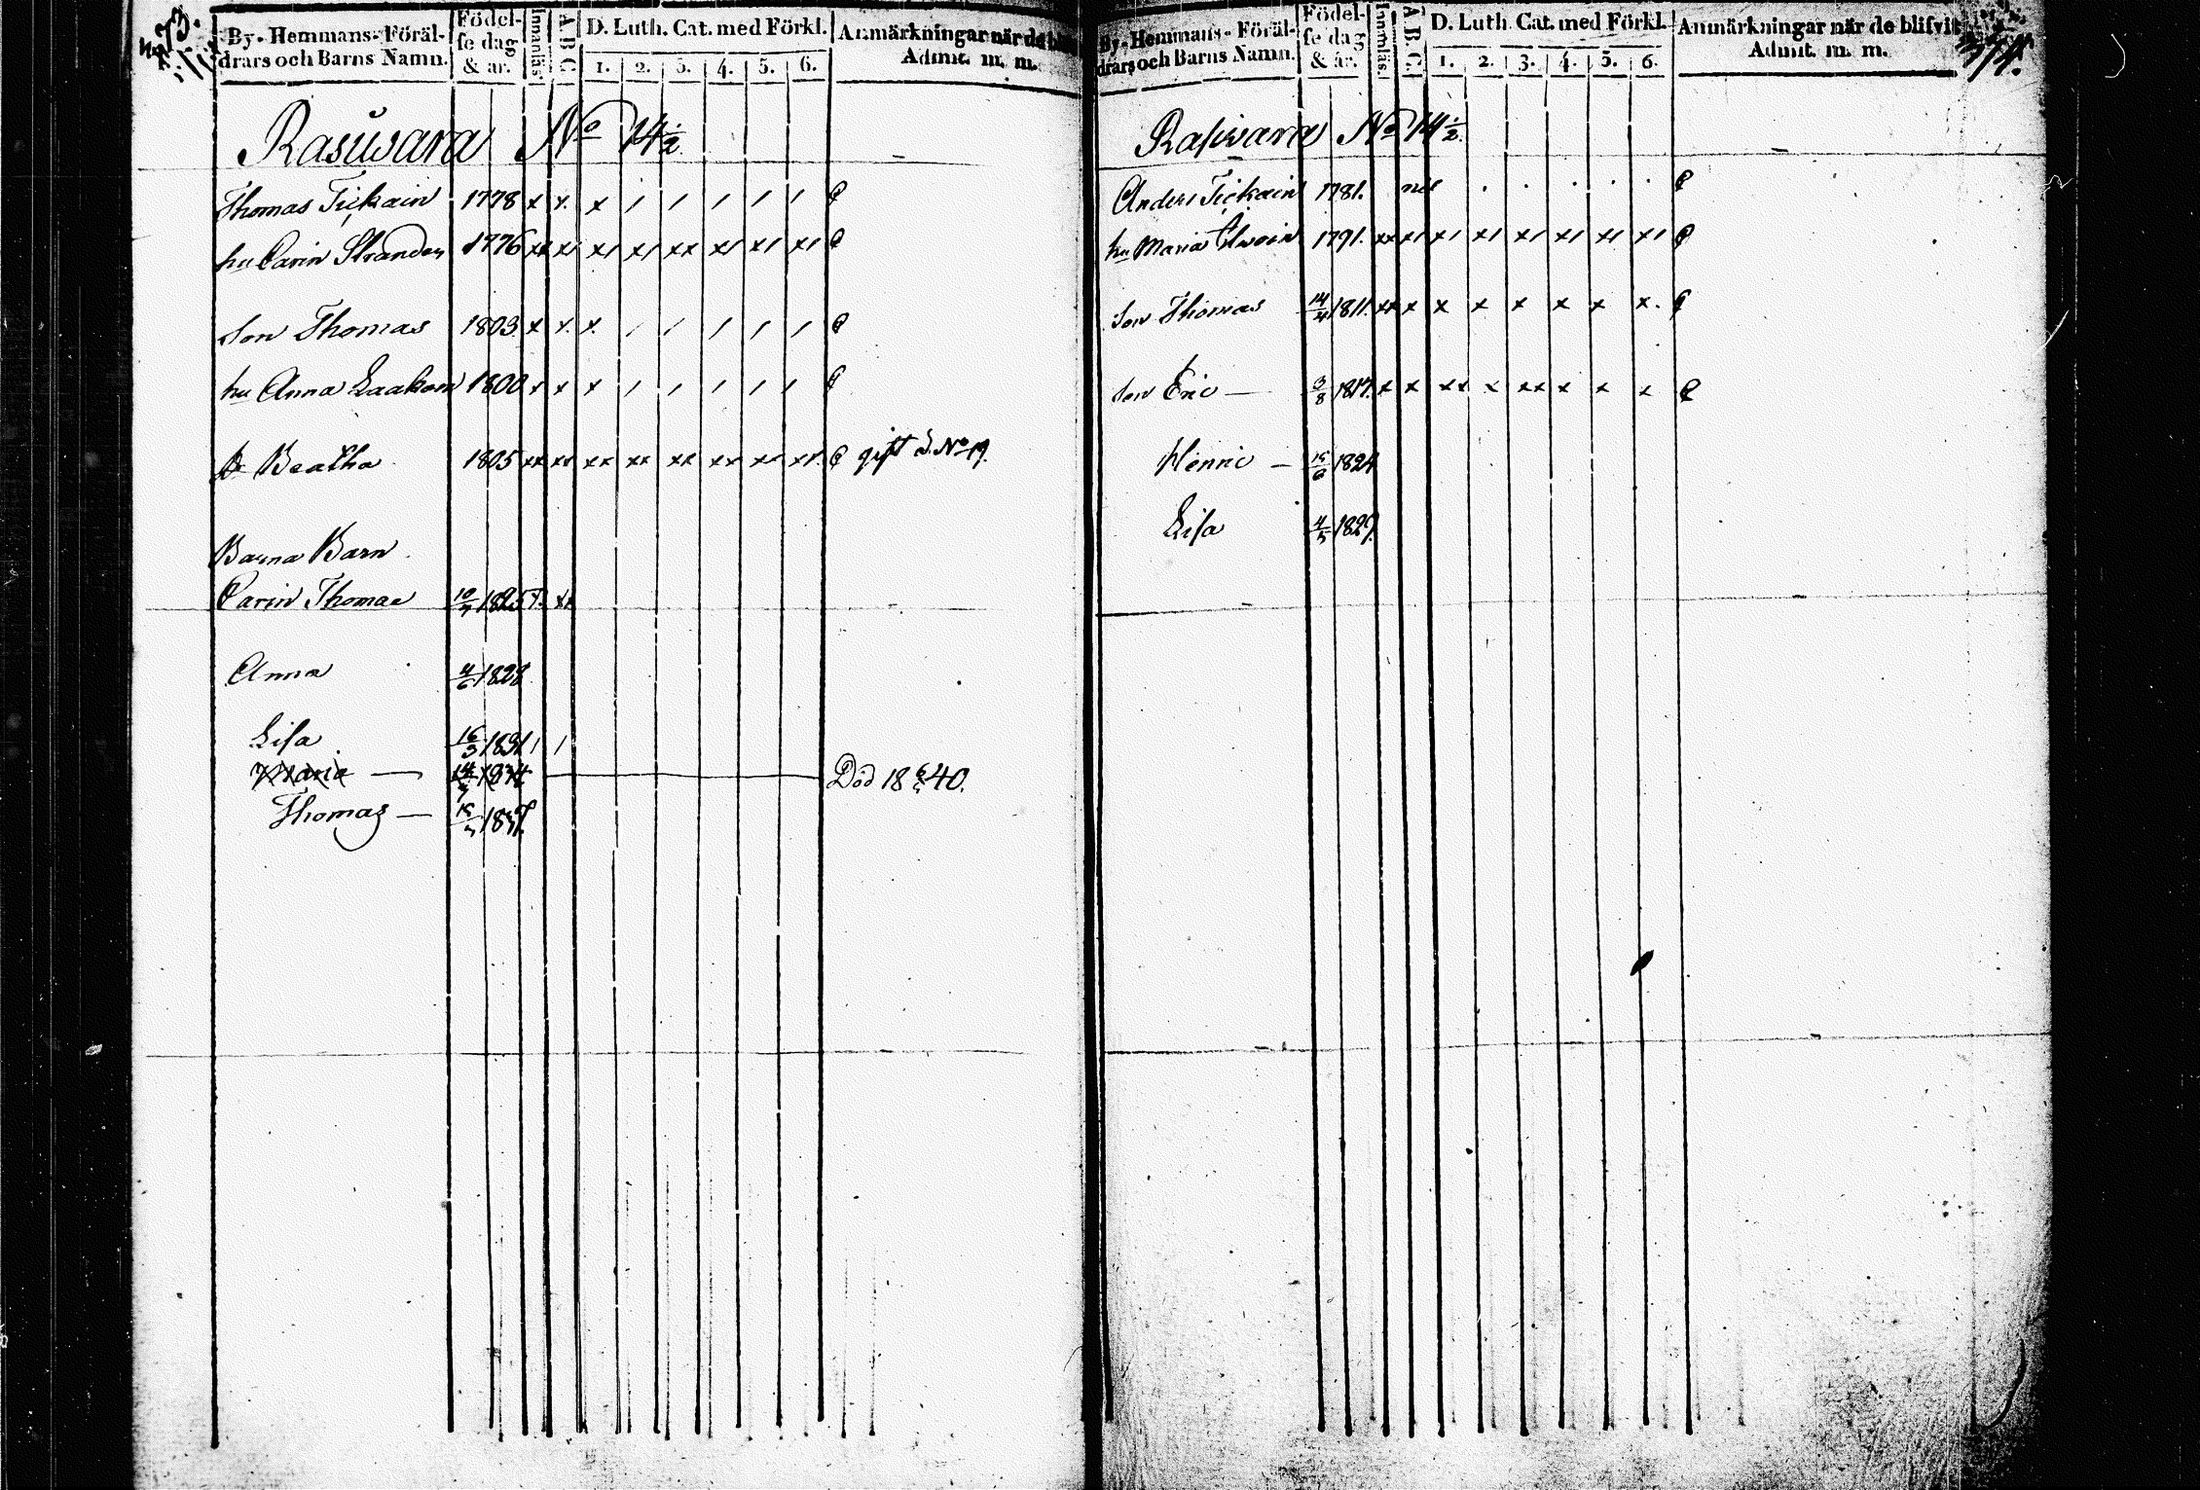 373.
By- Hemmans- Föräl-
drars och Barns Namn.
Födel-
se dag
& år.
Innanläs.
A. B. C.
D. Luth. Cat. med Förkl.
1. 2. 3. 4. 5. 6.
Anmärkningar när de
Admit. m. m.
Rasuwara No 14½.
Thomas Tickain 1778 x x. x / / / / /
hu Carin Strander 1776 xx x/ x/ x/ xx x/ x/ x/
son Thomas 1803. x x x. / / / / /
hu Anna Laakon 1800 x x x / / / / /
Dr Beatha 1805 xx xx xx xx xx xx xx xx. gift I. No 19.
Barna Barn
Carin Thomae 10/7 1825 x. xx
Anna 4/6 1828
Lisa 16/3 1831 / /
Maria — 14/7 1834 Död 18 6/5 40.
Thomas — 1837.
374.
By- Hemmans- Föräl-
drars och Barns Namn.
Födel-
se dag
& år.
Innanläs.
A. B. C.
D. Luth. Cat. med Förkl.
1. 2. 3. 4. 5. 6.
Anmärkningar när de blifvit
Admit. m. m.
Rasuvara No 14½.
Anders Tickain 1781. nil . . . . .
hu Maria 1791. xx x/ x/ x/ x/ x/ x/ x/
son Thomas 14/4 1811. xx x x x x x x x.
son Eric — 3/8 1817. x x xx x xx x x x
Henric — 15/6 1824
Lisa 4/5 1829.